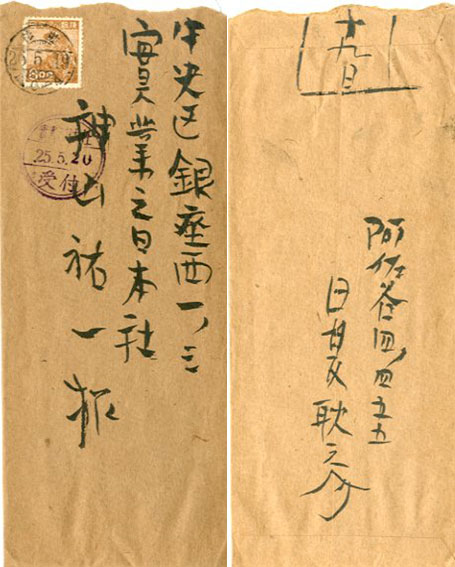 中央区銀座西一ノ三
實業之日本社
神山祐一様
25.5.20
受付
8.00
十九日
阿佐谷四ノ四五五
日夏耿之介